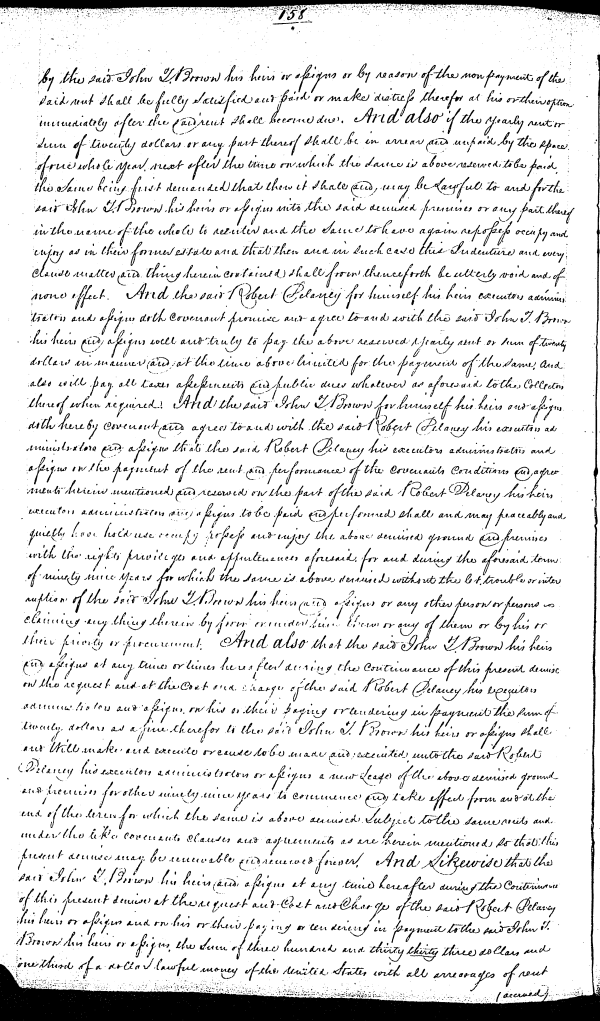 158
by the said John T. Brown his heirs or assigns or by reason of the non payment of the
said rent shall be fully satisfied and paid or make distress therefor at his or their option
immediately after the said rent shall become due. And also if the yearly rent or
sum of twenty dollars or any part thereof shall be in arrear and unpaid by the space
of one whole year next after the time on which the same is above reserved to be paid
the same being first demanded that then it shall and may be Lawful to and for the
said John T. Brown his heirs or assigns into the said demised premises or any part thereof
in the name of the whole to reenter and the same to have again repossess occupy and
enjoy as in their former estate and that then and in such case this Indenture and every
clause matter and thing herein contained shall from thenceforth be utterly void and of
none effect. And the said Robert Delaney for himself his heirs executors adminis
trators and assigns doth covenant promise and agree to and with the said John T. Brown
his heirs and assigns well and truly to pay the above reserved yearly rent or sum of twenty
dollars in manner and at the time above limited for the payment of the same, and
also will pay all taxes assessments and public dues whatever as aforesaid to the Collectors
thereof when required. And the said John T. Brown for himself his heirs and assigns
doth hereby covenant and agree to and with the said Robert Delaney his executors ad
ministrators and assigns that the said Robert Delaney his executors administrators and
assigns on the payment of the rent and performance of the covenants conditions and agree
ments herein mentioned and reserved on the part of the said Robert Delaney his heirs
executors administrators and assigns to be paid and performed shall and may peaceably and
quietly have hold use occupy possess and enjoy the above demised ground and premises
with the rights privileges and appurtenances aforesaid for and during the aforesaid term
of ninety nine years for which the same is above demised without the let, trouble or inter
ruption of the said John T. Brown his heirs and assigns or any other person or persons
claiming any thing therein by from or under him them or any of them or by his or
their priority or procurement. And also that the said John T. Brown his heirs
and assigns at any time or times hereafter during the continuance of this present demise
on the request and at the cost and charge of the said Robert Delaney his executors
administrators and assigns, on his or their paying or tendering in payment the sum of
twenty dollars as a fine therefor to the said John T. Brown his heirs or assigns shall
and Will make and execute or cause to be made and executed unto the said Robert
Delaney his executors administrators or assigns a new Lease of the above demised ground
and premises for other ninety nine years to commence and take effect from and at the
end of the term for which the same is above demised subject to the same rents and
under the like covenants clauses and agreements as are herein mentioned so that this
present demise may be renewable and renewed forever. And Likewise that the
said John T. Brown his heirs and assigns at any time hereafter during the Continuance
of this present demise at the request and Cost and Charge of the said Robert Delaney
his heirs or assigns and on his or their paying or tendering in payment to the said John T.
Brown his heirs or assigns, the sum of three hundred and thirty thirty three dollars and
one third of a dollar lawful money of the United States with all arrearages of rent
(accrued)